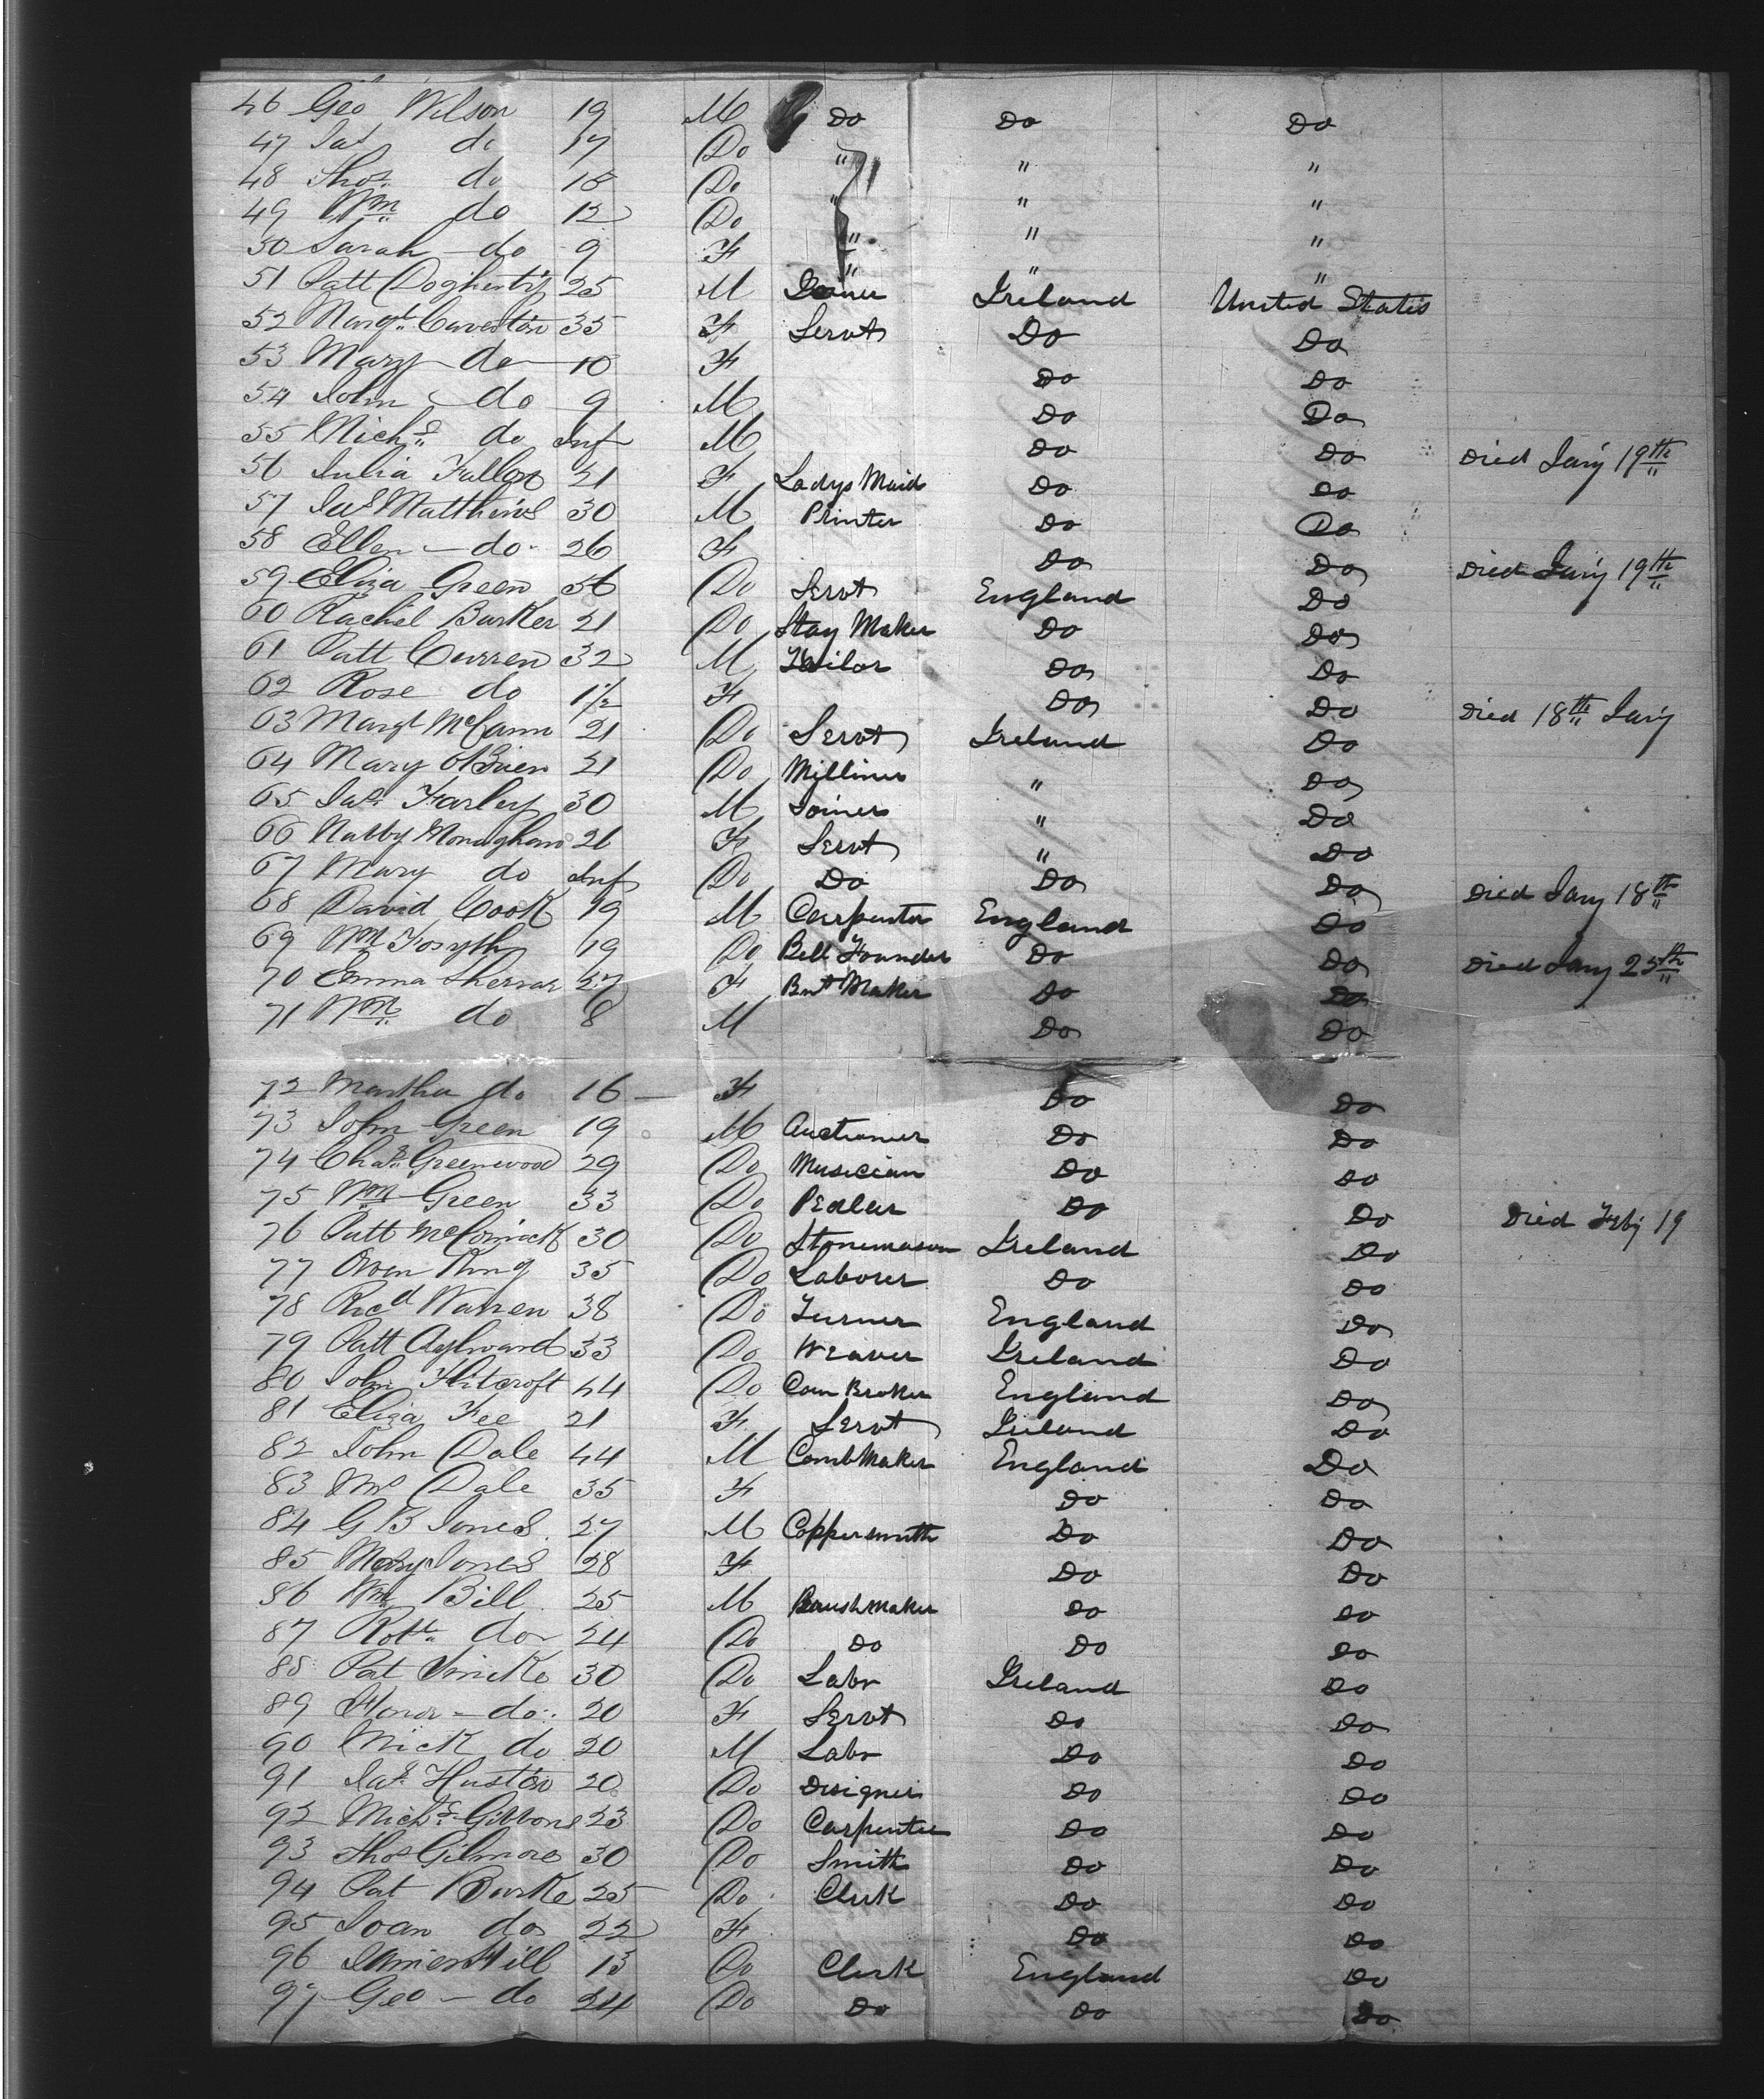 46 Geo Wilson 19 M Do Do Do
47 Jas do 17 Do " " "
48 Thos do 18 Do " " "
49 Wm do 12 Do " " "
50 Sarah do 9 F " " "
51 Patt Dogherty 25 M Joiner Ireland United States
52 Margt 35 F Servt Do Do
53 Mary do 10 F Do Do
54 John do 9 M Do Do
55 Michl do Inf M Do Do Died Jany 19th
56 Julia Fallon 21 F Ladys Maid Do Do
57 Jas Matthews 30 M Printer Do Do
58 Ellen do 26 F Do Do Died Jany 19th
59 Eliza Green 56 Do Servt England Do
60 Rachel Barker 21 Do Stay Maker Do Do
61 Patt Curren 32 M Tailor Do Do
62 Rose do 1½ F Do Do Died 18th Jany
63 Margt McCann 21 Do Servt Ireland Do
64 Mary OBrien 21 Do Milliner " Do
65 Jas Farley 30 M Joiner " Do
66 Nabby Monaghan 26 F Servt " Do
67 Mary do Inf Do Do Do Do Died Jany 18th
68 David Cook 19 M Carpenter England Do
69 Wm Forsyth 19 Do Bell Founder Do Do Died Jany 25th
70 Emma 27 F Bnt Maker Do Do
71 Wm do 8 M Do Do
72 Martha do 16 F Do Do
73 John Green 19 M Auctioneer Do Do
74 Chas Greenwood 29 Do Musician Do Do
75 Wm Green 33 Do Pedler Do Do Died Feby 19
76 Patt McCormick 30 Do Stonemason Ireland Do
77 Owen King 35 Do Laborer Do Do
78 Ricd Warren 38 Do Turner England Do
79 Patt Aylward 33 Do Weaver Ireland Do
80 John Flitcroft 44 Do Corn Broker England Do
81 Eliza Fee 21 F Servt Ireland Do
82 John Dale 44 M CombMaker England Do
83 Mrs Dale 35 F Do Do
84 G B Jones 27 M Coppersmith Do Do
85 Mary Jones 28 F Do Do
86 Wm Bill 25 M Brushmaker Do Do
87 Robt do 24 Do Do Do Do
88 Pat 30 Do Labr Ireland Do
89 Honor do 20 F Servt Do Do
90 Mick do 20 M Labr Do Do
91 Jas Huston 20 Do Designer Do Do
92 Michl Gibbons 23 Do Carpenter Do Do
93 Thos Gilmore 30 Do Smith Do Do
94 Pat Burke 25 Do Clerk Do Do
95 Joan do 22 F Do Do
96 James Hill 13 Do Clerk England Do
97 Geo do 24 Do Do Do Do